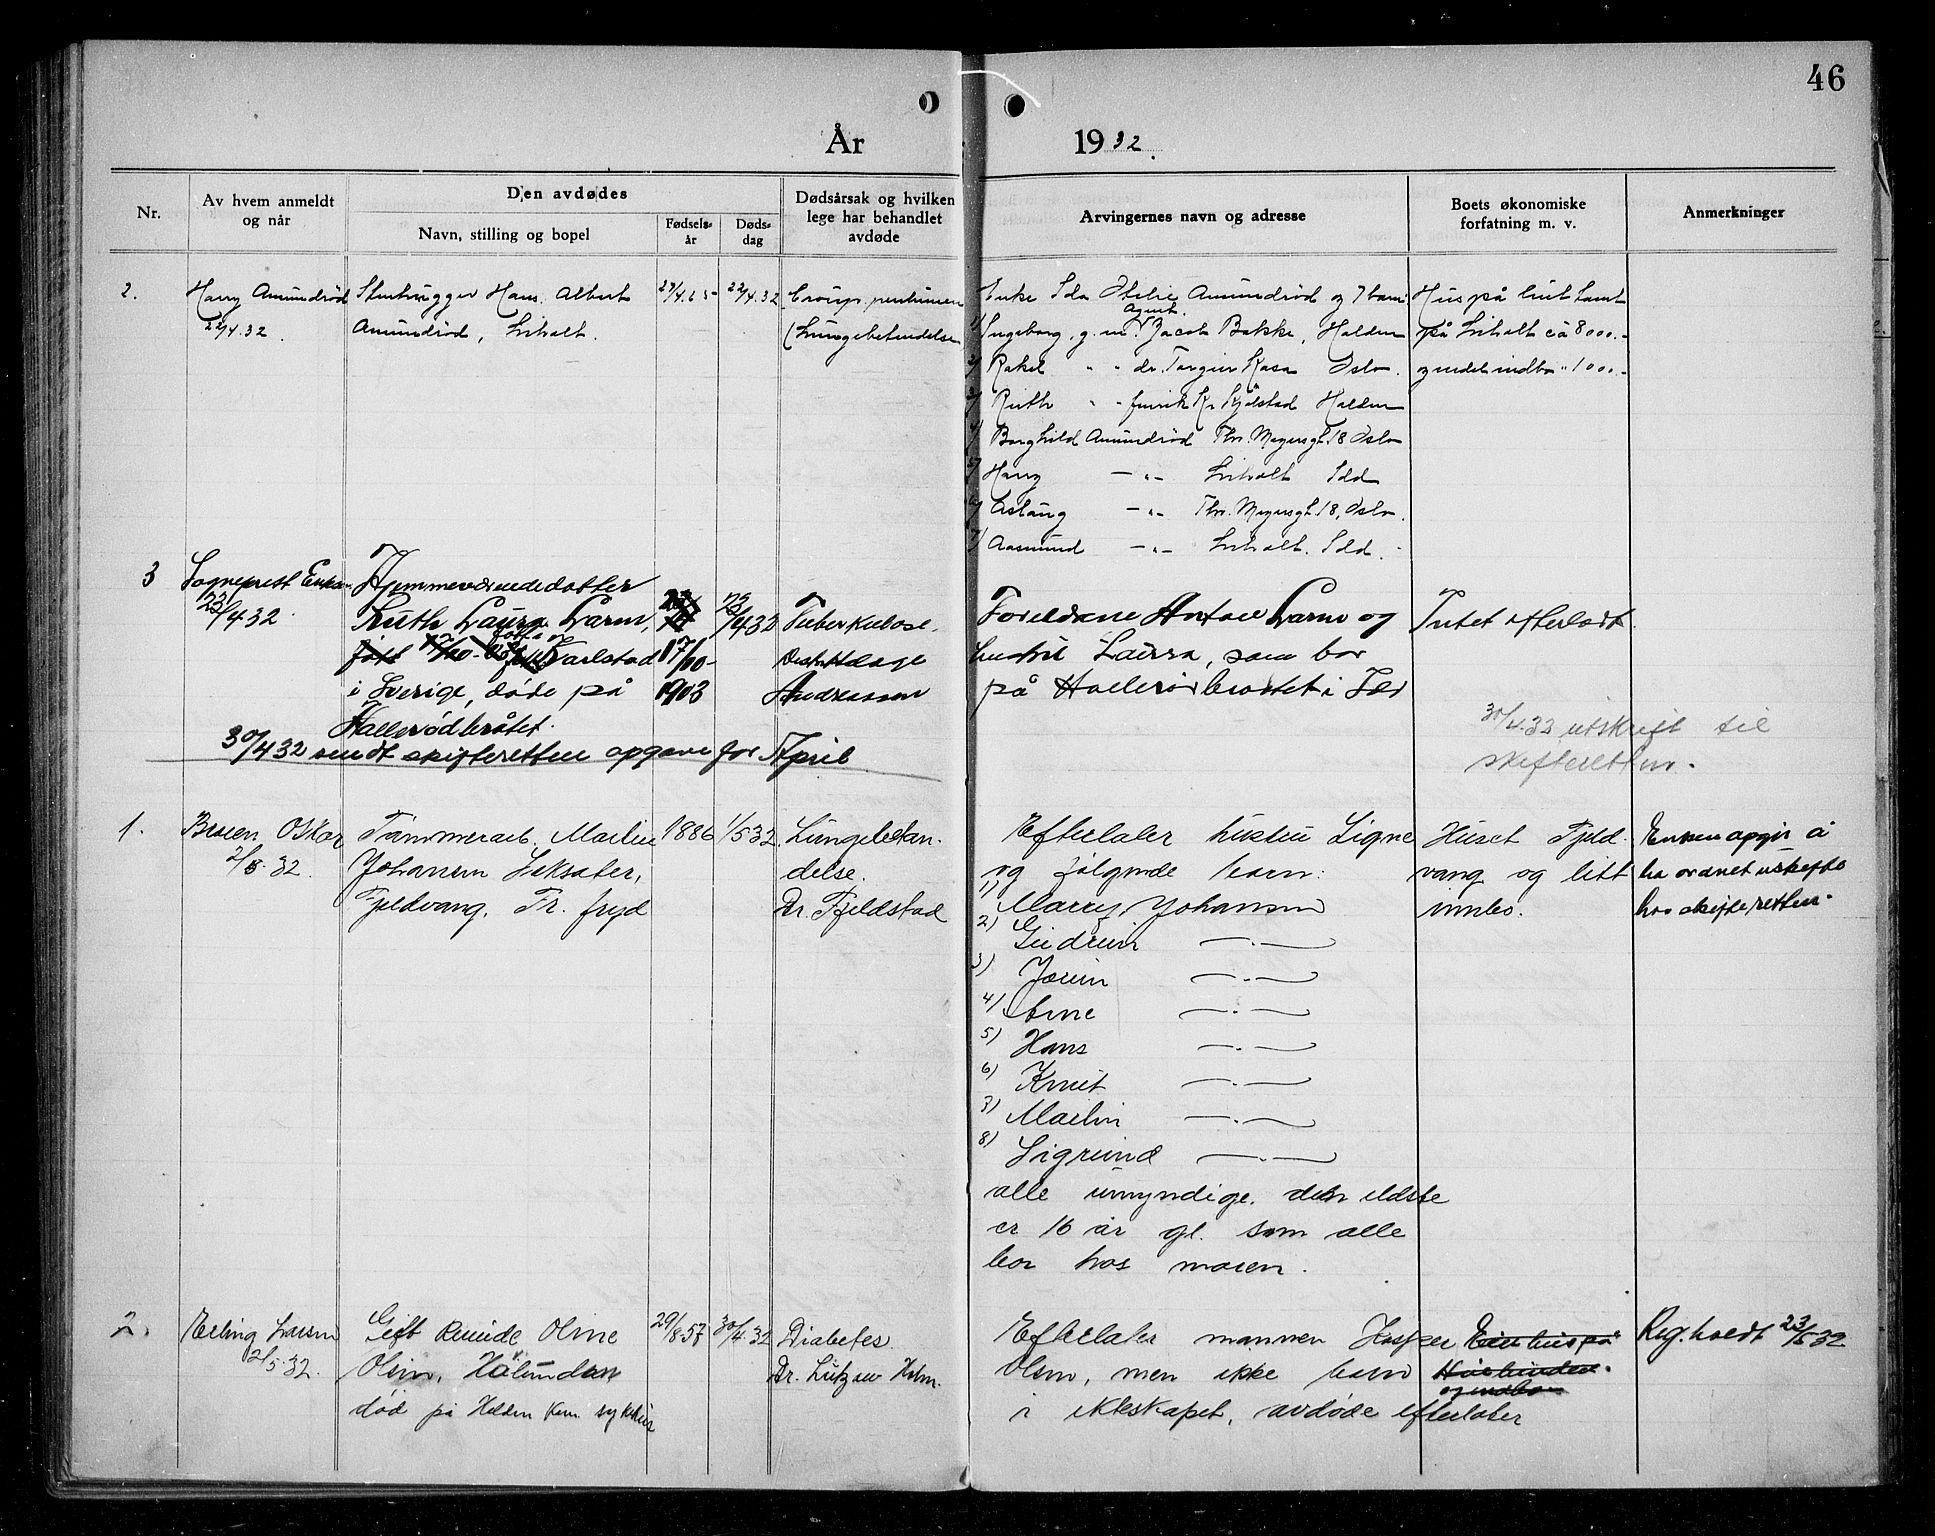 46
År 1932.
Nr.
Av hvem anmeldt og når
Den avdødes
Navn, stilling og bopel
Fødselsår
Dødsdag
Dødsårsak og hvilken lege har behandlet avdøde
Arvingernes navn og adresse
Boets økonomiske forfatning m. v.
Anmerkninger
2.
Harry Amundrød
22/4.32
Stenhugger Hans Albert
Amundrød, Liholt.
22/4.32
Croup.
(Lungebetendelse
Enke Ida Otelie Amundrød og 7 barn
1) Ingeborg, g.m. Agent Jacob Bakke, Halden
2) Rakel " " dr. Torgier Kasa Oslo.
3) Ruth " " Kr. Kjølstad Halden
4) Borghild Amundrød Thv. Meyersgt. 18 Oslo
5) Harry — " — Liholt Idd
6) Aslaug — " — Thv. Meyersgt. 18, Oslo.
7) Aasmund — " — Liholt. Idd.
Hus på
på Liholt ca 8000.-
indbo " 1000.-
3
Sogneprest
23/4 32.
Hjemmeværende datter
Ruth Laura Larm,
født Karlstad
i Sverige, døde på
Hallerødbråtet.
17/10-
1903
Tuberkulose.
Distriktslæge
Andreassen
Foreldrene Anton Larm og
hustru Laura, som bor
på Hallerødbråtet i Idd
Intet efterladt.
30/4 32 sendt skifteretten opgave for April
30/4.32 utskrift til
skifteretten.
1.
Oskar
2/5.32.
Tømmerarb. Martin
Johansen Isksater,
Fjeldvang, Tr. fryd
1886
1/5 32
Lungebetendelse.
Dr. Fjeldstad
Efterlater hustru Signe
og følgende barn:
1) Marry Johansen
2) Gudrun —"—
3) Jorun —"—
4) Arne —"—
5) Hans —"—
6) Knut —"—
7) Martin —"—
8) Sigrund —"—
alle umyndige. den eldste
er 16 år gl. som alle
bor hos moren.
Huset Fjeldvang og litt
innbo.
Enken opgir å
ha ordnet uskifte
hos skifteretten.
2.
Erling Larsen
2/5.32.
Gift Oline
Olsen,
død på Halden Kom. sykehus
29/8.57
30/4.32
Diabetes.
Dr. Lützow Holm.
Efterlater mannen Jesper
Olsen, men ikke barn
i ekteskapet, avdøde efterlater
Reg. holdt 23/5 32